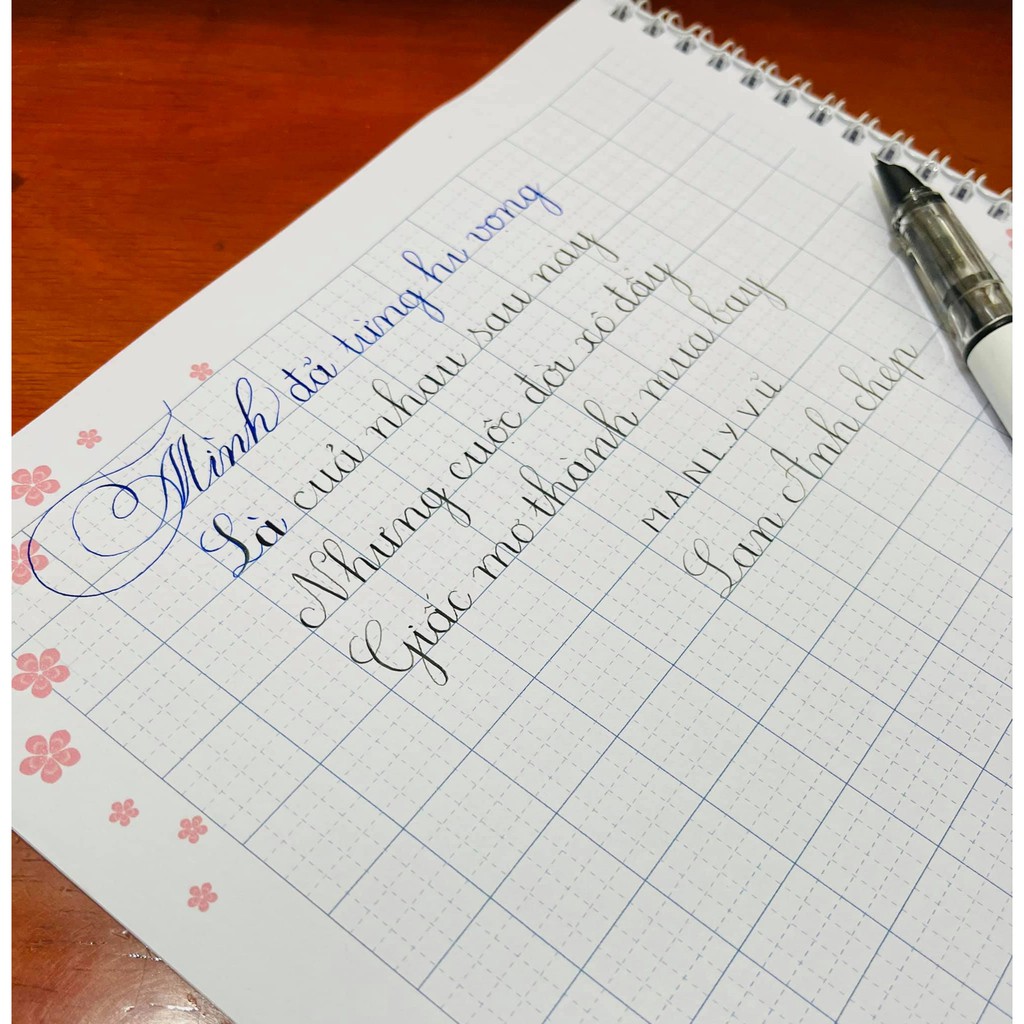 Mình đả từng hi vong
Là của nhau sau này
Nhưng cuộc đời xô đẩy
Giấc mơ thành mưa bay
MANLY VŨ
Lan Anh chép